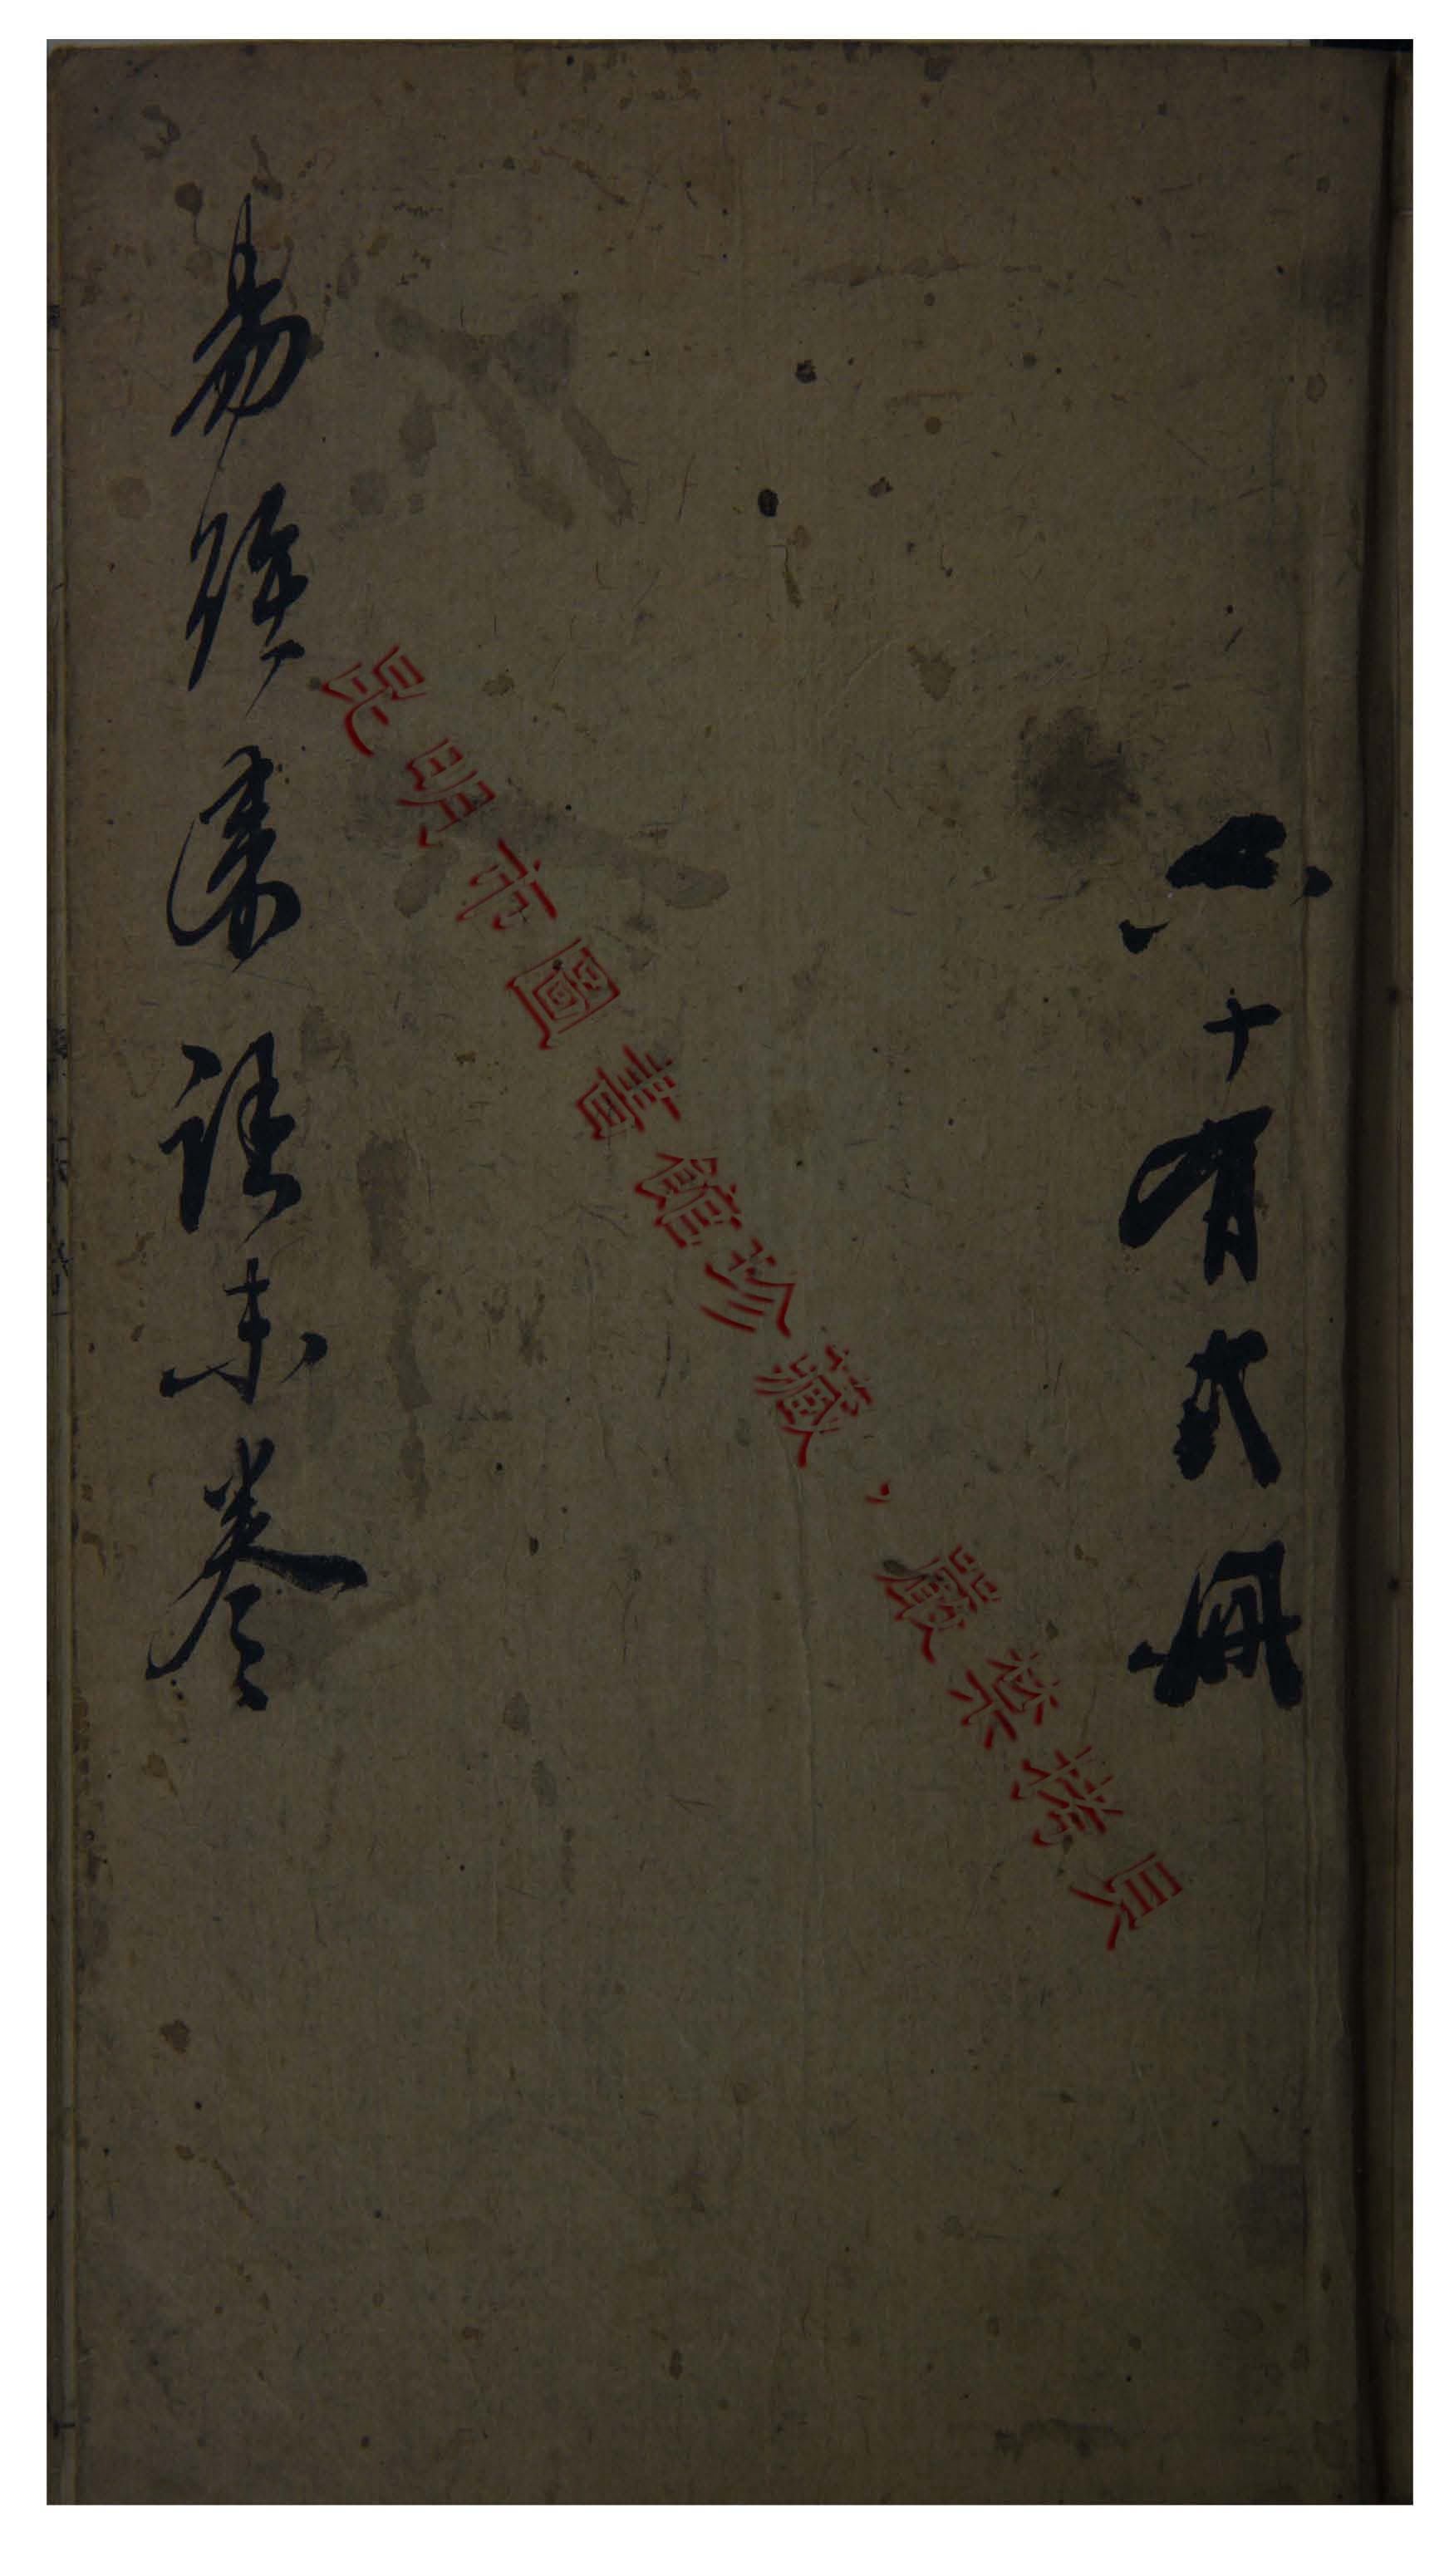 六十有弍冊
昆明市圖書館珍藏，嚴禁拷貝
易經註末卷